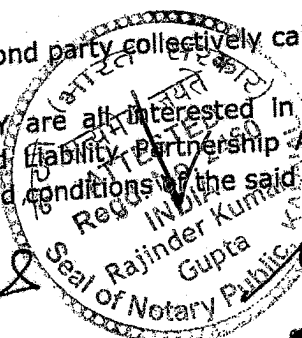 ond party collectively ca
are all interested in
d Liability Partnership A
d conditions of the said
भारत सरकार
सत्यमेव जयते
ATTESTED
INDIA
Rajinder Kuma
Gupta
Seal of Notary Public